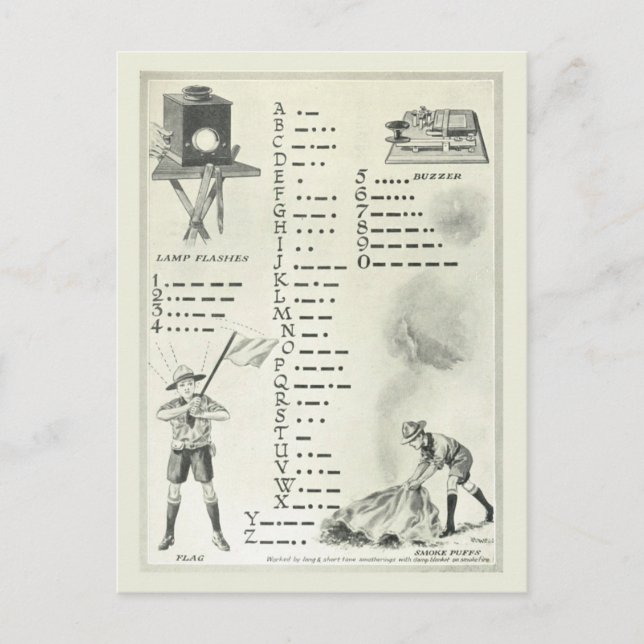 A .-
B -...
C -.-.
D -..
E .
F ..-.
G --.
H ....
I ..
J .---
K -.-
L .-..
M --
N -.
O ---
P .--.
Q --.-
R .-.
S ...
T -
U ..-
V ...-
W .--
X -..-
Y -.--
Z --..
LAMP FLASHES
1 .----
2 ..---
3 ...--
4 ....-
BUZZER
5 .....
6 -....
7 --...
8 ---..
9 ----.
0 -----
FLAG
SMOKE PUFFS
Worked by long & short time smotherings with damp blanket on smoke fire.